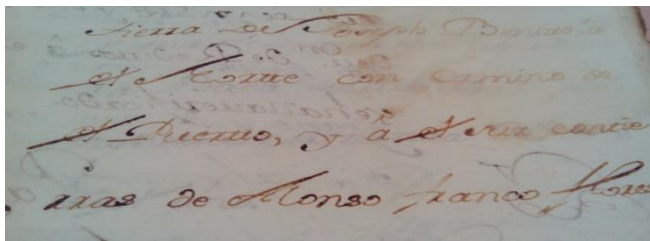 tierra De Joseph Benito à
el Norte con camino de
el Picruo, y à el sur contie
rras de Alonso franco flores